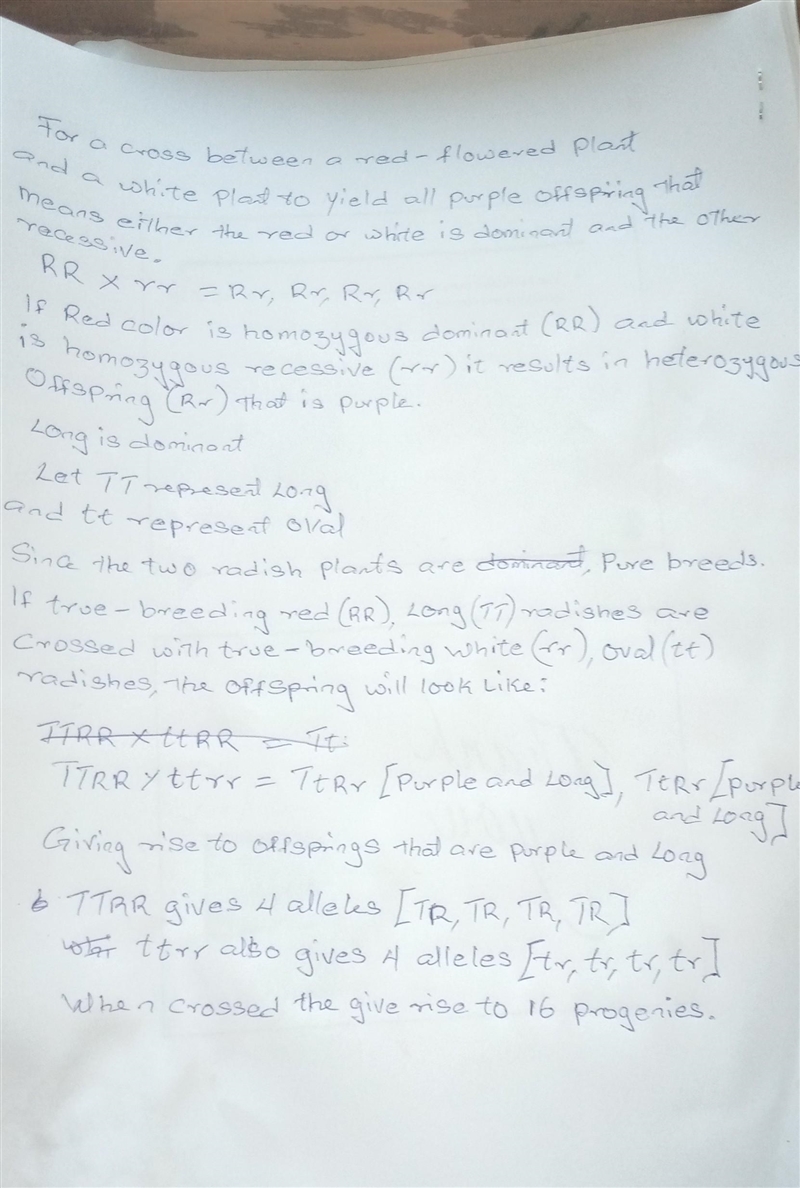 For a cross between a red-flowered Plant
and a white Plant to yield all purple offspring that
means either the red or white is dominant and the other
recessive.
RR × rr = Rr, Rr, Rr, Rr
If Red color is homozygous dominant (RR) and white
is homozygous recessive (rr) it results in heterozygous
Offspring (Rr) that is purple.
Long is dominant
Let TT represent Long
and tt represent oval
Since the two radish plants are dominant, Pure breeds.
If true-breeding red (RR), Long (TT) radishes are
Crossed with true-breeding white (rr), oval (tt)
radishes, the offspring will look like:
TTRR × ttRR = Tt
TTRR × ttrr = TtRr [Purple and Long], TtRr [purple
and Long]
Giving rise to offsprings that are purple and Long
b TTRR gives 4 alleles [TR, TR, TR, TR]
ttrr also gives 4 alleles [tr, tr, tr, tr]
When crossed the give rise to 16 progenies.